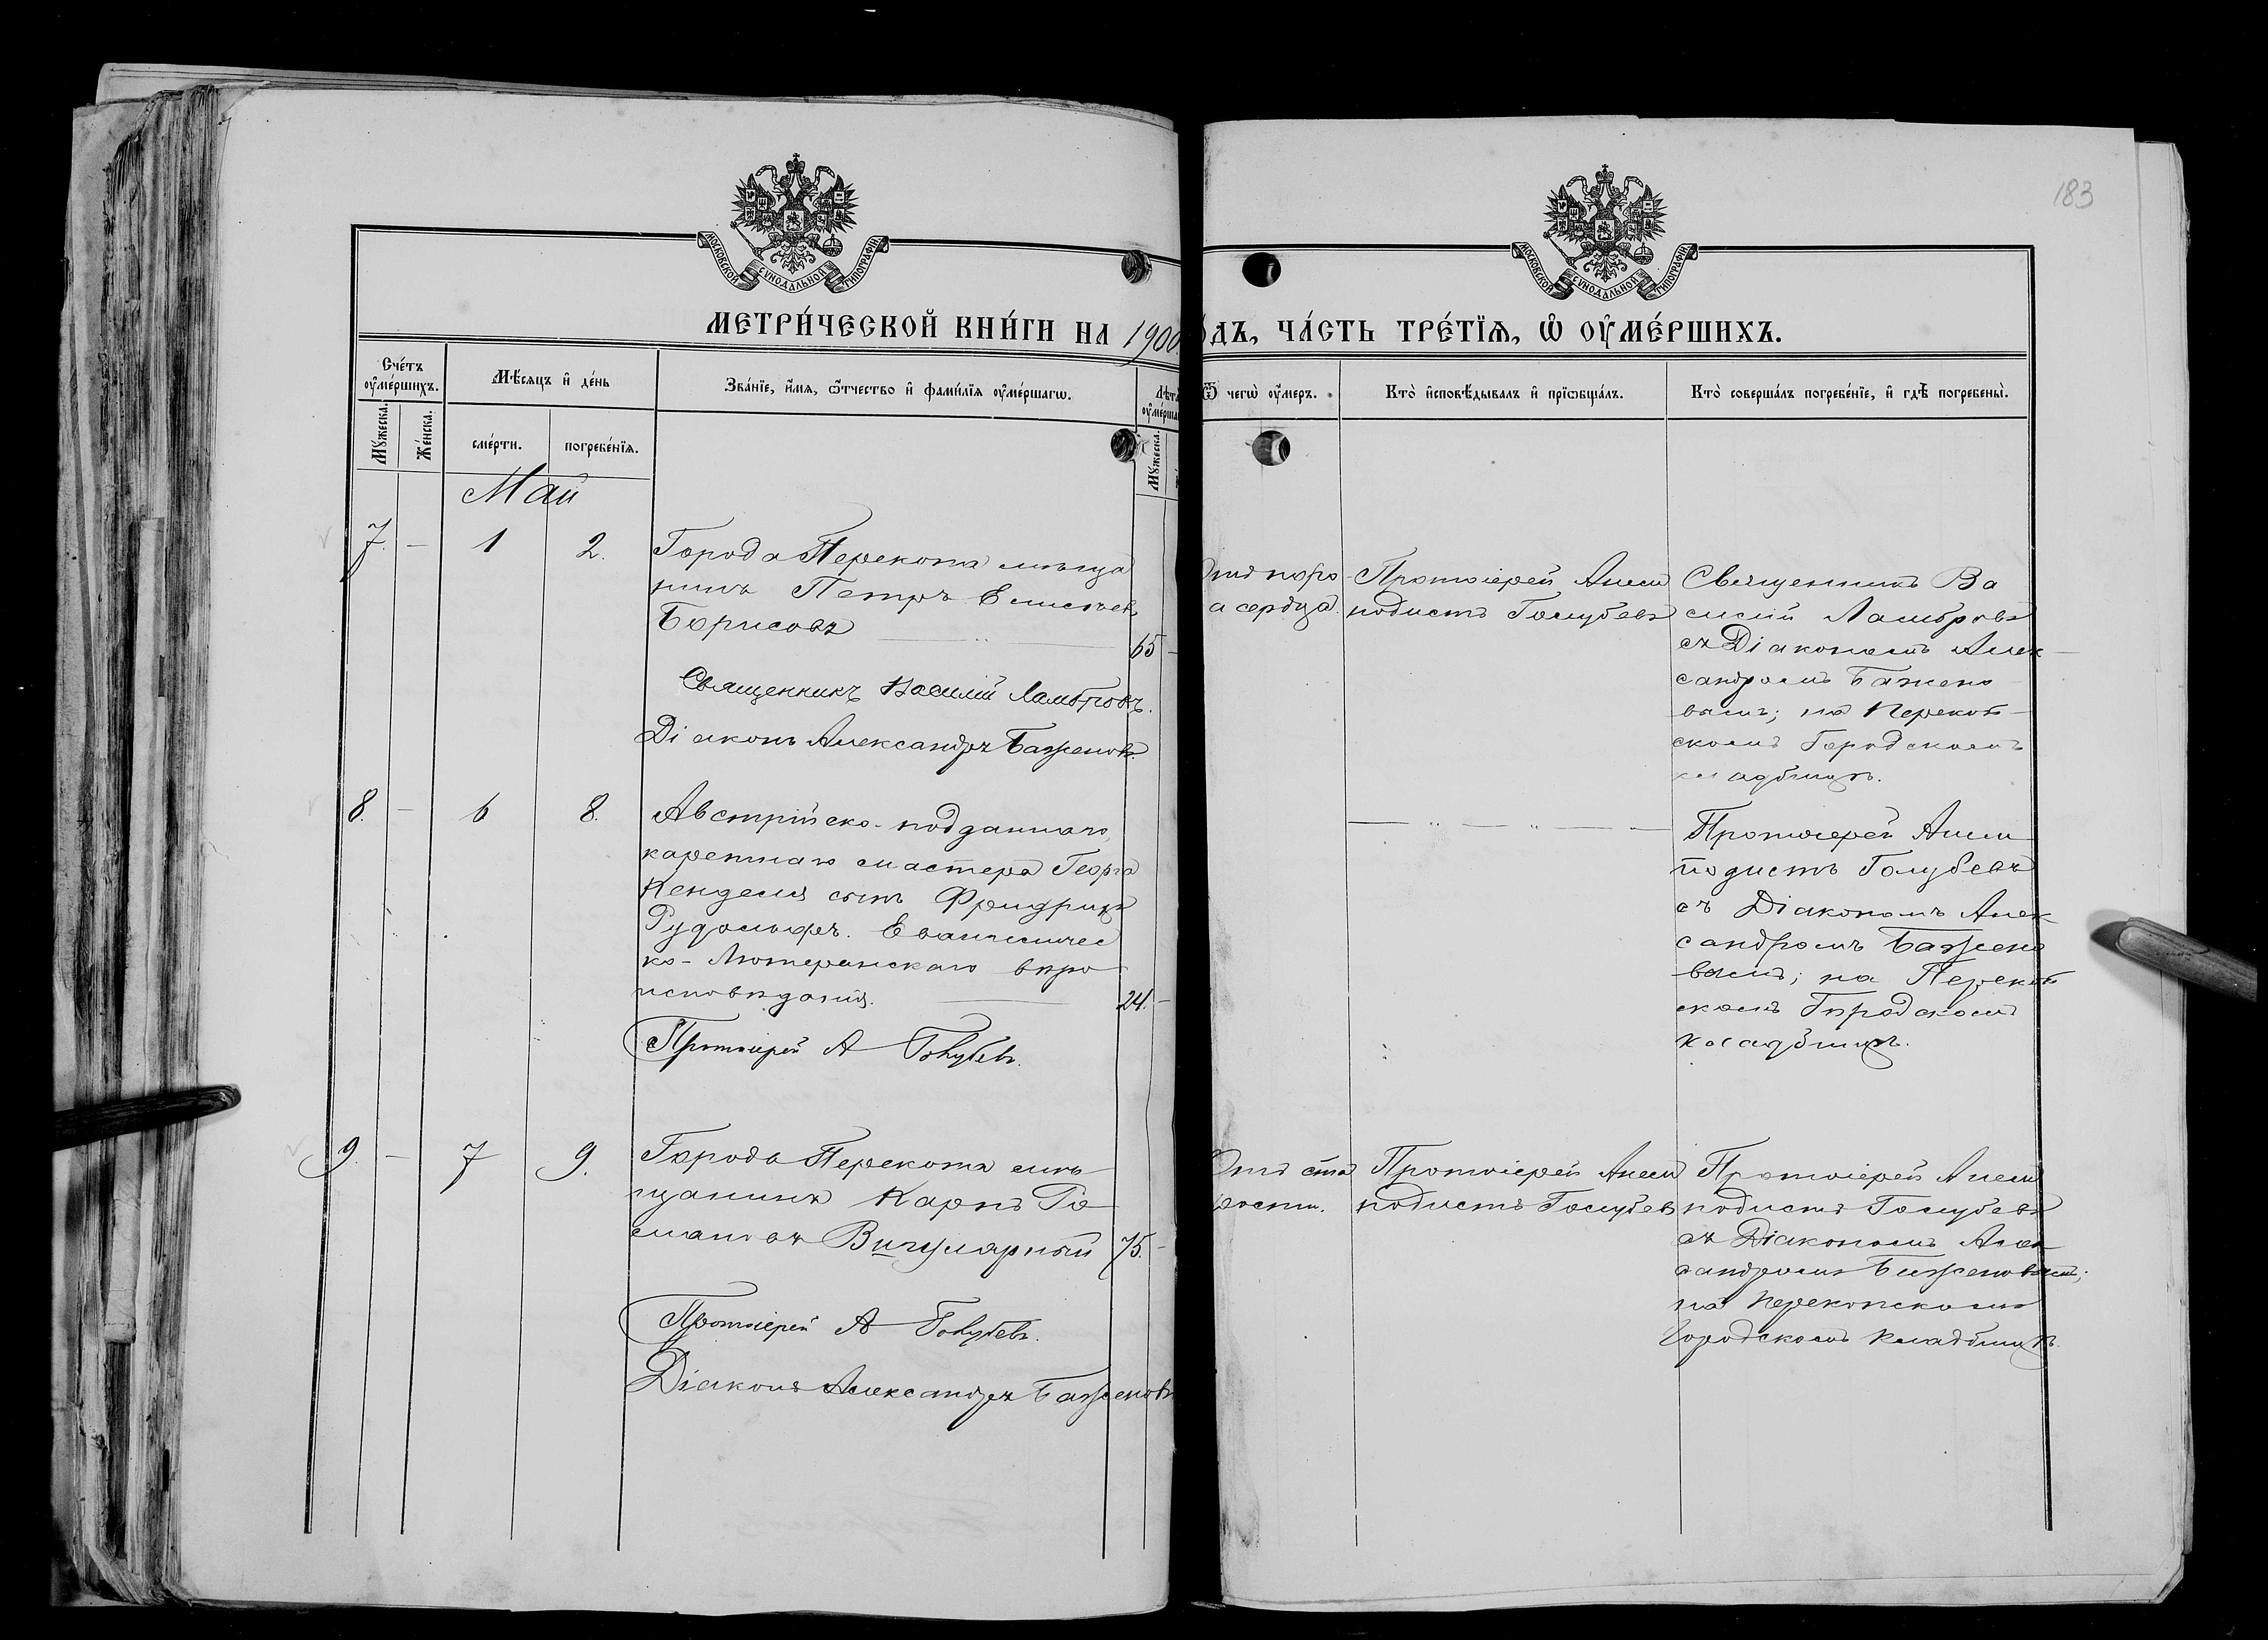 183
МОСКОВСКОЙ СУНОДАЛЬНОЙ ТИПОГРАФІИ
МОСКОВСКОЙ СУНОДАЛЬНОЙ ТИПОГРАФІИ
МЕТРИ́ЧЕСКОЙ КНИ́ГИ НА 1900
ДЪ, ЧА́СТЬ ТРЕ́ТЇѦ, Ѡ҆ ОУ҆МЕ́РШИХЪ.
Сче́тъ оу҆ме́ршихъ.
Мꙋ́жеска.
Же́нска.
Мѣ́сяцъ и҆ де́нь
сме́рти.
погребе́нїѧ.
Зва́нїе, и҆́мѧ, ѻ҆́тчество и҆ фами́лїѧ оу҆ме́ршагѡ.
Мꙋ́жеска.
Ѿ чегѡ̀ оу҆́меръ.
Кто̀ и҆сповѣ́дывалъ и҆ прїѡбща́лъ.
Кто̀ соверша́лъ погребе́нїе, и҆ гдѣ̀ погребены̀.
Май
7. — 1 2.
Города Перекопа мѣща
нинъ Петръ Елисѣев
Борисовъ
65
Священникъ Василій Ламбровъ.
Діаконъ Александръ Баженовъ.
поро
а сердца.
Протоіерей Анем
подистъ Голубевъ
Священникъ Ва
силій Ламбровъ
съ Діакономъ Алек
сандромъ Бажено
вымъ; на Перекоп
скомъ Городскомъ
кладбищѣ.
8. — 6 8.
Австрійско-подданнаго,
каретнаго мастера Георга
Кенделя сынъ Фридрихъ
Рудольфъ. Евангеличес
ко-Лютеранскаго вѣро
исповѣданія.
24.
Протоіерей А Голубевъ.
Протоіерей Анем
подистъ Голубевъ
съ Діакономъ Алек
сандромъ Бажено
вымъ; на Перекоп
скомъ Городскомъ
кладбищѣ.
9. — 7 9.
Города Перекопа мѣ
щанинъ Карпъ Ро
мановъ 75.
Протоіерей А Голубевъ.
Діаконъ Александръ Баженовъ
Отъ ста
рости.
Протоіерей Анем
подистъ Голубев
Протоіерей Анем
подистъ Голубевъ
съ Діакономъ Алек
сандромъ Баженовымъ;
на Перекопскомъ
Городскомъ кладбищѣ.